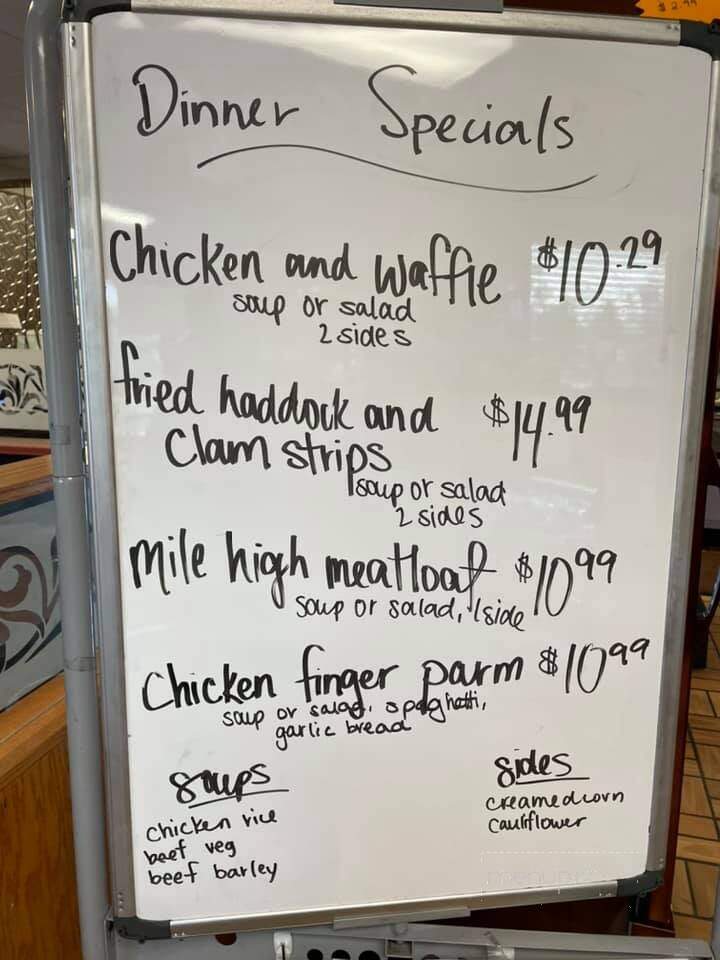 $2.99
Dinner Specials
Chicken and waffle $10.29
soup or salad
2 sides
fried haddock and $14.99
Clam strips
soup or salad
2 sides
Mile high meatloaf $10.99
soup or salad, 1 side
Chicken finger parm $10.99
soup or salad, spaghetti,
garlic bread
Soups
chicken rice
beef veg
beef barley
Sides
creamed corn
Cauliflower